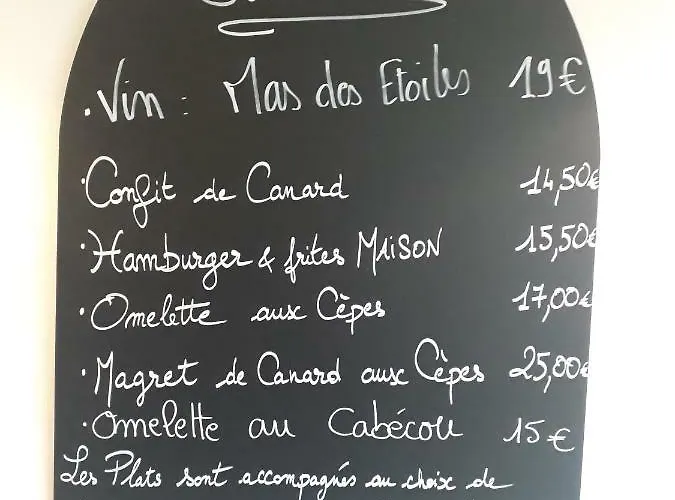 ·Vin : Mas des Etoiles 19€
·Confit de Canard 14,50€
·Hamburger & frites MAiSON 15,50€
·Omelette aux Cèpes 17,00€
·Magret de Canard aux Cèpes 25,00€
·Omelette au Cabécou 15€
Les Plats sont accompagnés au choix de